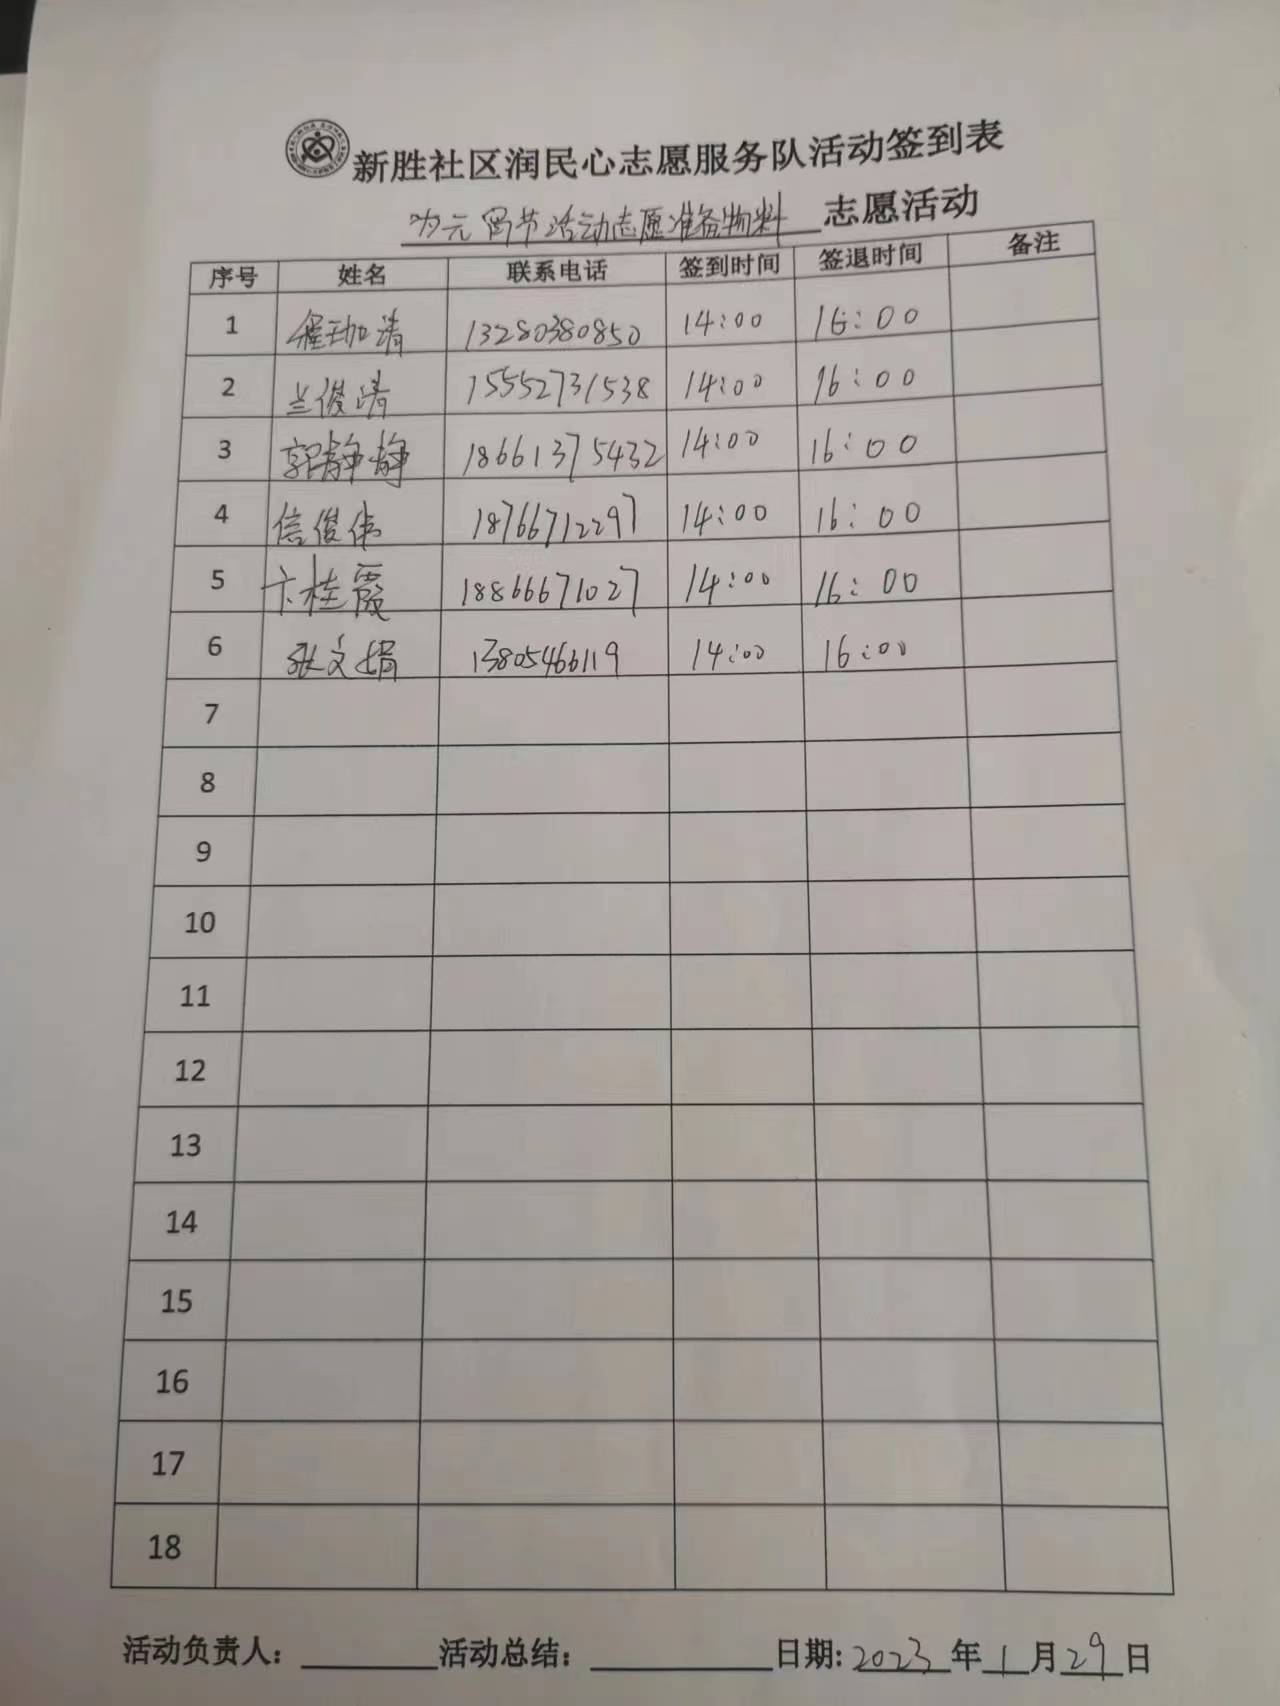 新胜社区润民心志愿服务队活动签到表
为元宵节活动志愿准备物料 志愿活动
序号 姓名 联系电话 签到时间 签退时间 备注
1 清 13280380850 14:00 16:00
2 兰俊涛 15552731538 14:00 16:00
3 郭静静 18661375432 14:00 16:00
4 信俊伟 18766712297 14:00 16:00
5 卞桂霞 18866671027 14:00 16:00
6 张文娟 13805466119 14:00 16:00
7
8
9
10
11
12
13
14
15
16
17
18
活动负责人: 活动总结: 日期: 2023 年 1 月 29 日